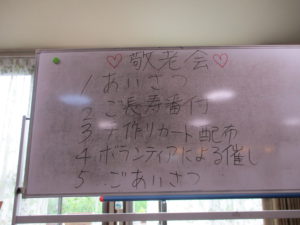 ♡敬老会♡
1 あいさつ
2 ご長寿番付
3. 手作りカード配布
4. ボランティアによる催し
5 ごあいさつ